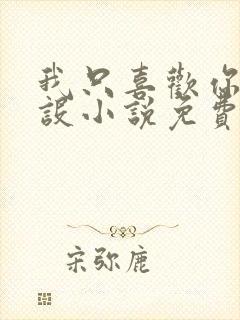 我只喜歡你
設小說免費
宋弥鹿